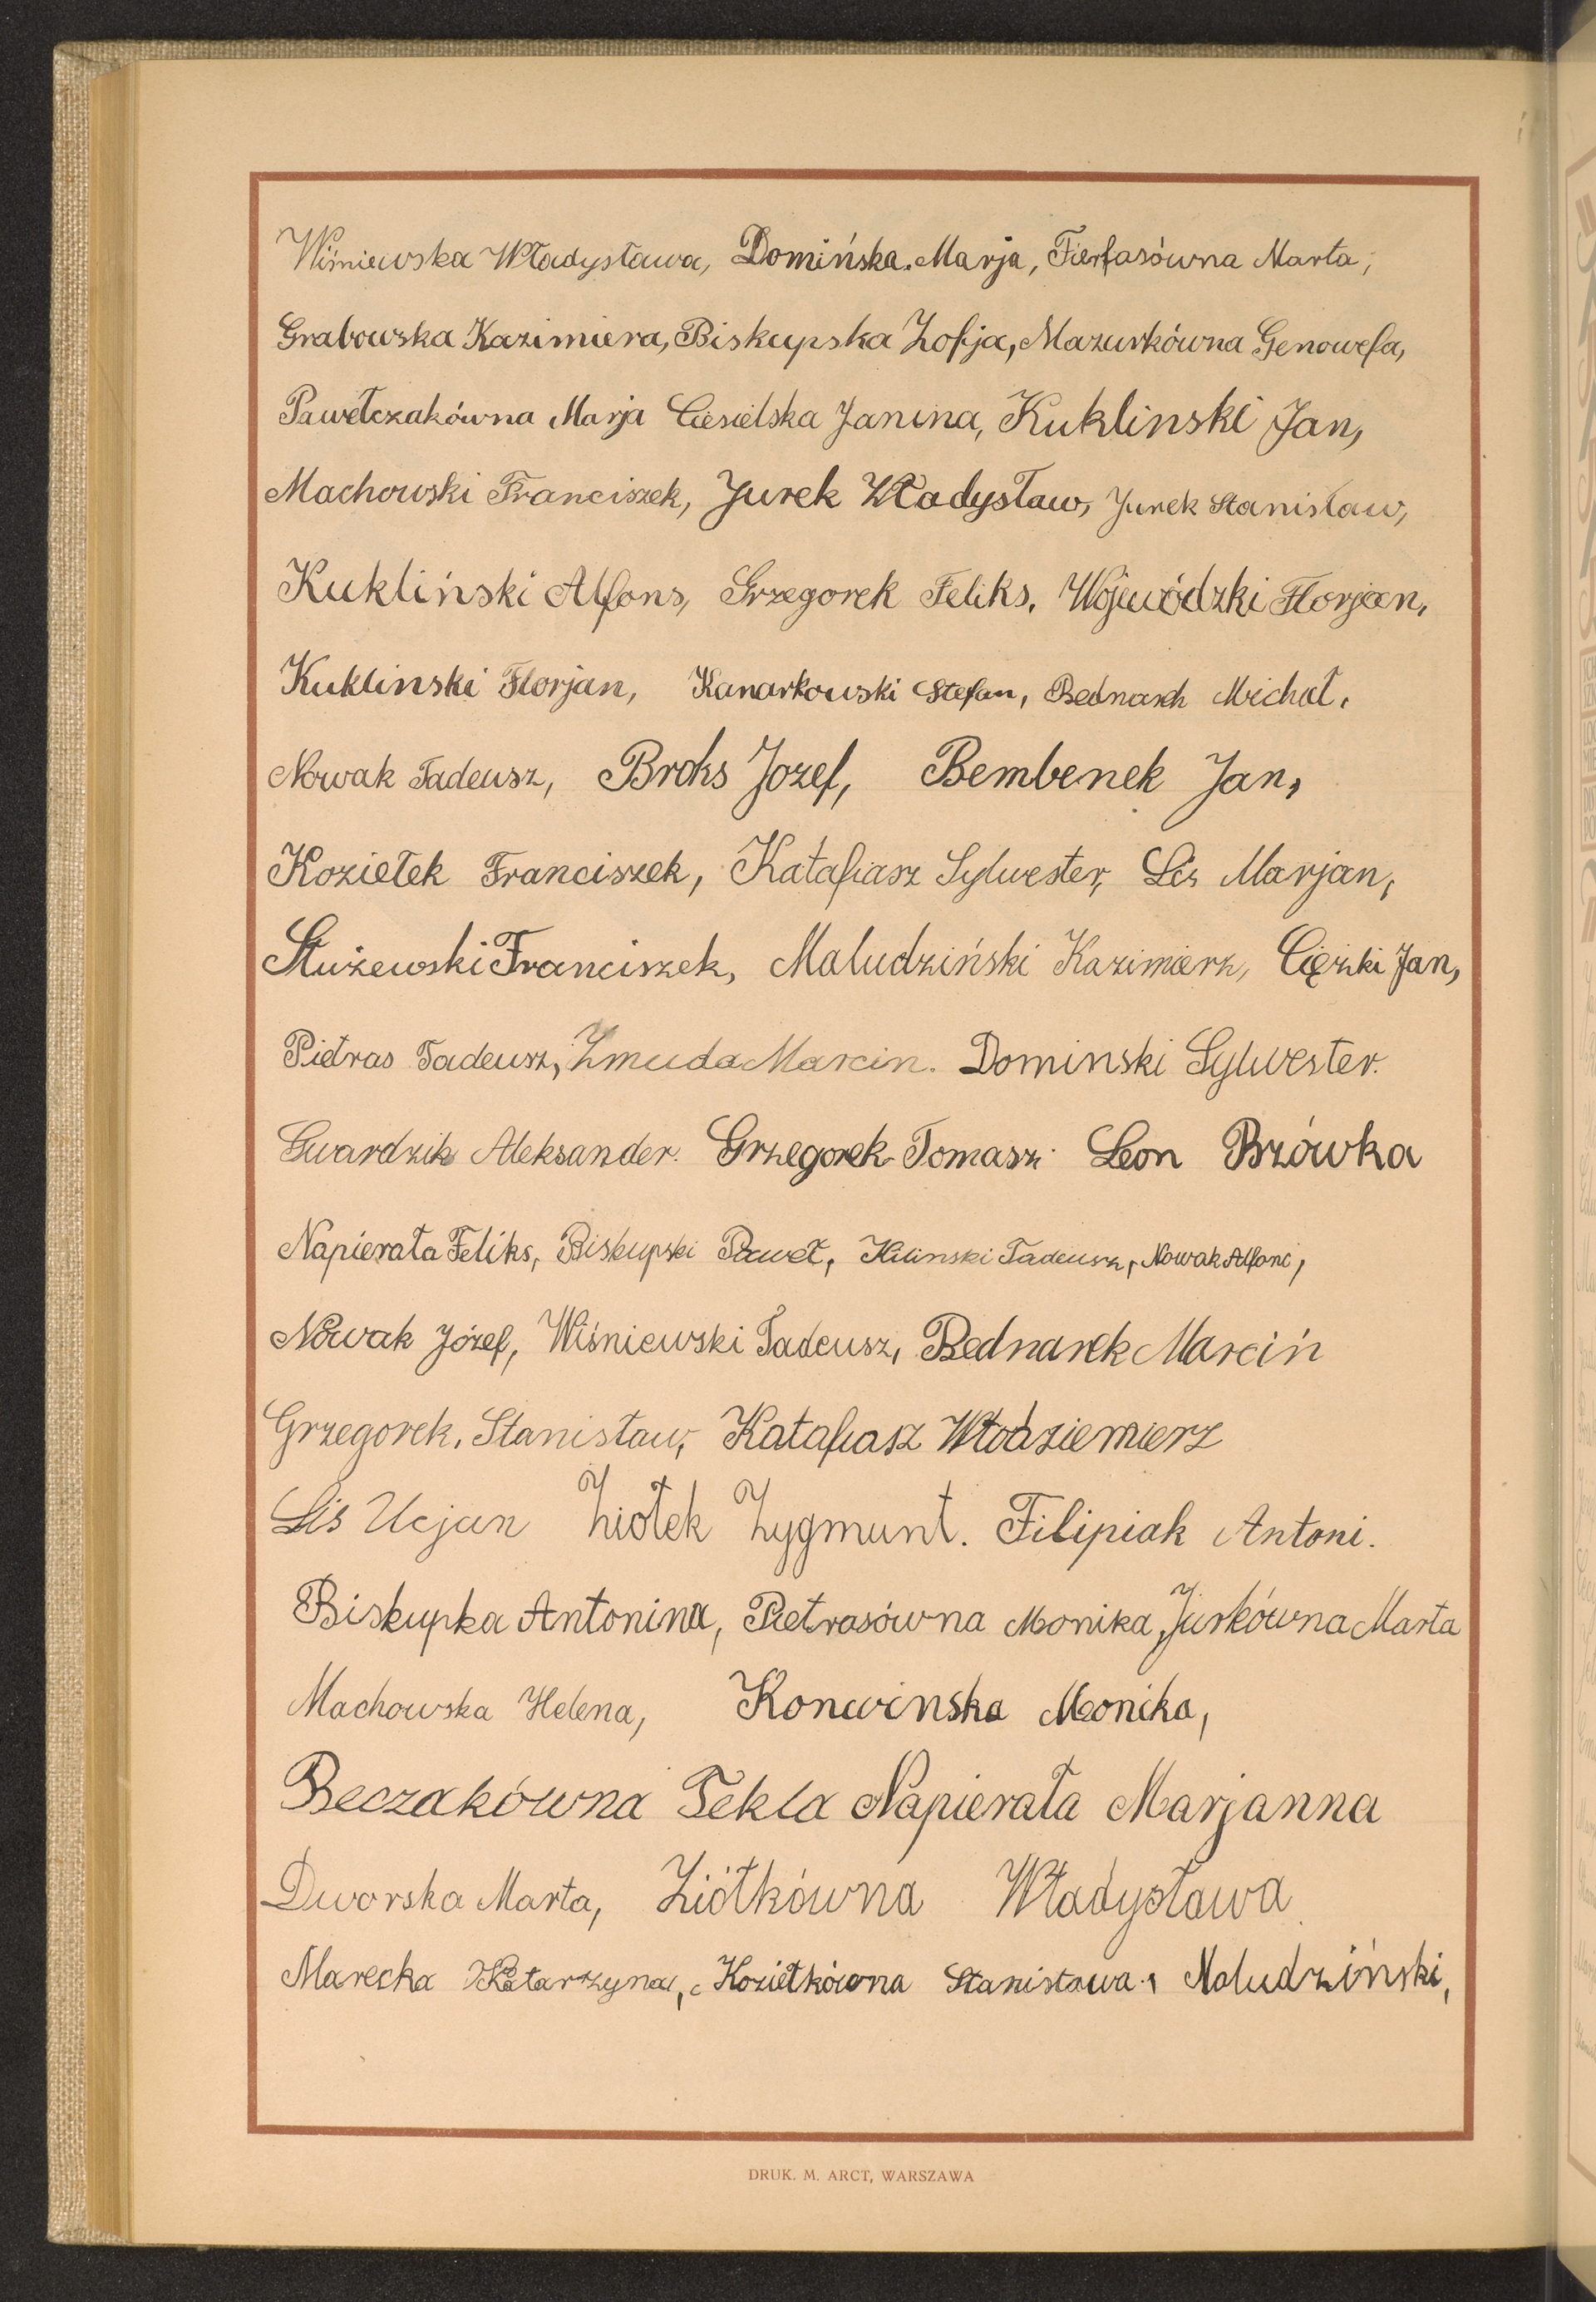 Wiśniewska Władysława, Domińska Marja, Fierfasówna Marta,
Grabowska Kazimiera, Biskupska Zofja, Mazurkówna Genowefa,
Pawełczakówna Marja Ciesielska Janina, Kuklinski Jan,
Machowski Franciszek, Jurek Władysław, Jurek Stanisław,
Kukliński Alfons, Grzegorek Feliks, Wojewódzki Florjan,
Kuklinski Florjan, Kanarkowski Stefan, Bednarek Michał,
Nowak Tadeusz, Broks Jozef, Bembenek Jan,
Koziełek Franciszek, Katafiasz Sylwester, Lis Marjan,
Służewski Franciszek, Maludziński Kazimierz, Ciężki Jan,
Pietras Tadeusz, Zmuda Marcin. Dominski Sylwester.
Gwardzik Aleksander. Grzegorek Tomasz Leon Bzówka
Napierała Feliks, Biskupski Paweł, Kilinski Tadeusz, Nowak Alfonc,
Nowak Józef, Wiśniewski Tadeusz, Bednarek Marciń
Grzegorek, Stanisław, Katafiasz Włodziemierz
Lis Ucjan Ziołek Zygmunt. Filipiak Antoni.
Biskupka Antonina, Pietrasówna Monika, Jurkówna Marta
Machowska Helena, Konwinska Monika,
Beczakówna Tekla Napierała Marjanna
Dworska Marta, Ziółkówna Władysława
Marecka Katarzyna, Koziełkówna Stanisława, Maludziński,
DRUK. M. ARCT, WARSZAWA